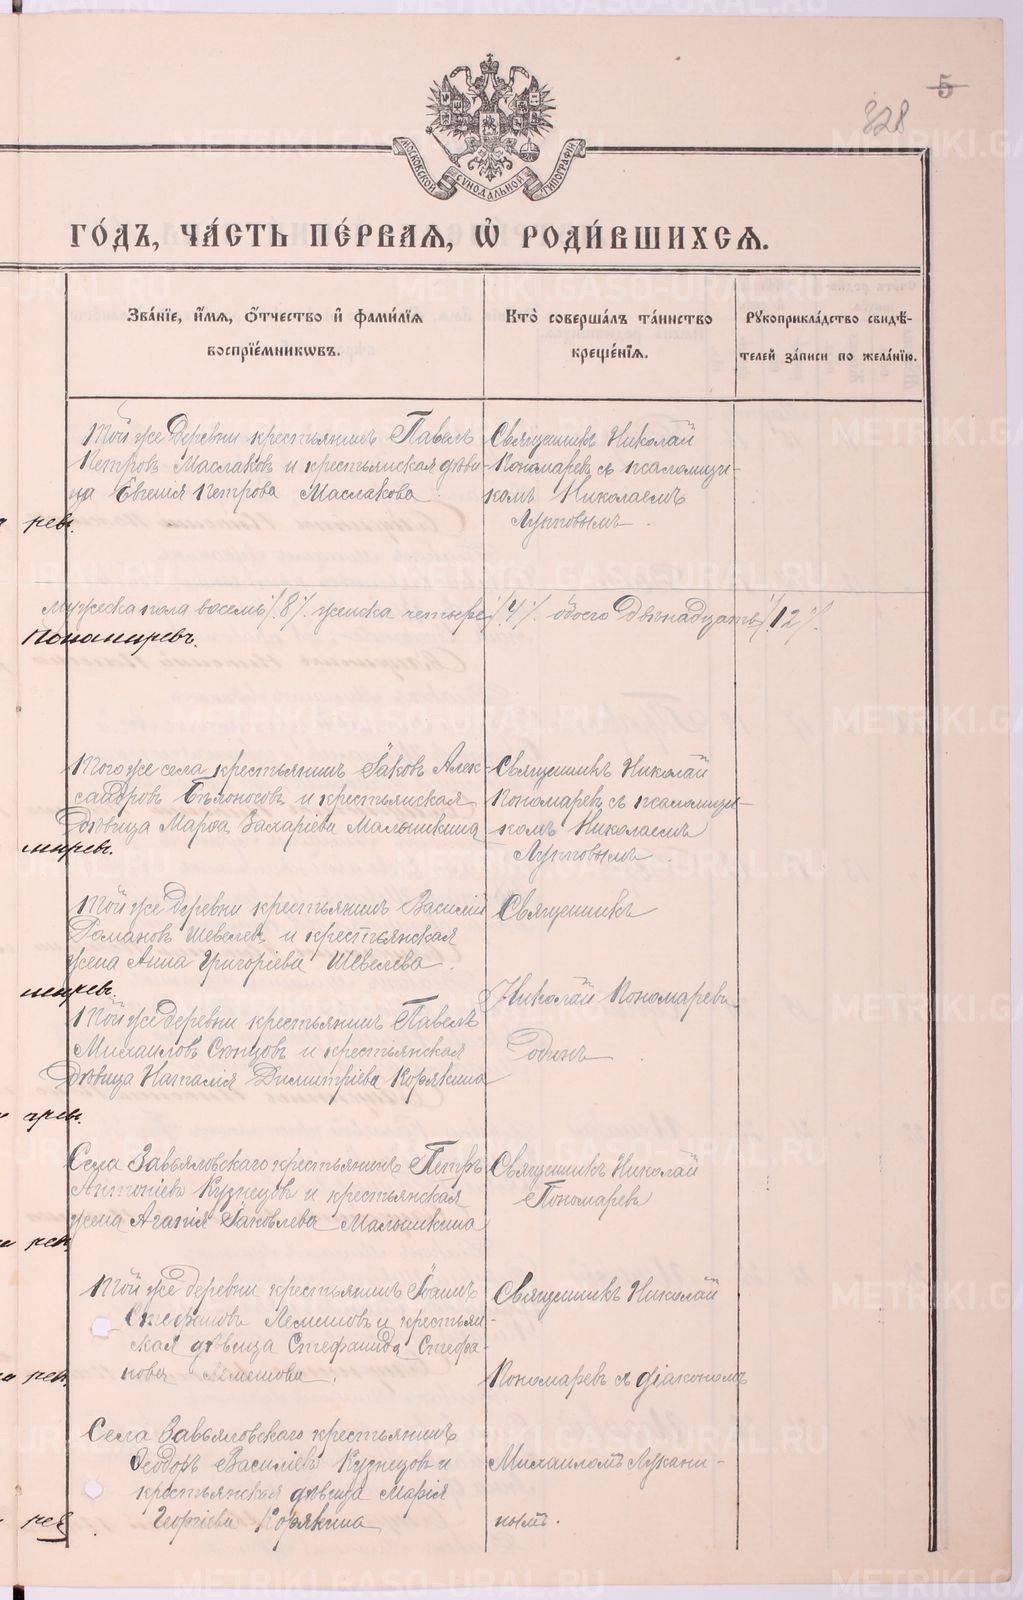 5
328
МОСКОВСКОЙ СѴНОДАЛЬНОЙ ТИПОГРАФІИ
ГО́ДЪ, ЧА́СТЬ ПЕ́РВАЯ, Ѡ҆ РОДИ́ВШИХСЯ.
Зва́нїе, и҆́мя, ѻ҆́тчество и҆ фами́лїя
воспрїе́мниковъ.
Кто̀ соверша́лъ та́инство
креще́нїя.
Рꙋкоприкла́дство свидѣ́-
телей за́писи по жела́нїю.
Той же деревни крестьянинъ Павелъ
Петровъ Маслаковъ и крестьянская дѣви-
ца Евгенія Петрова Маслакова.
Священникъ Николай
Пономаревъ съ псаломщи-
комъ Николаемъ
Лупповымъ.
рев.
мужеска пола восемь /.8./ женска четыре /.4./. обоего двѣнадцать /.12./.
Пономаревъ.
Того же села крестьянинъ Іаковъ Алек-
сандровъ Бѣлоносовъ и крестьянская
дѣвица Марѳа Захаріева Малышкина
Священникъ Николай
Пономаревъ съ псаломщи-
комъ Николаемъ
Лупповымъ.
Той же деревни крестьянинъ Василій
Романовъ Шевелевъ и крестьянская
жена Анна Григоріева Шевелева.
Священникъ
Николай Пономаревъ
Той же деревни крестьянинъ Павелъ
Михаиловъ Сѣнцовъ и крестьянская
дѣвица Наталія Димитріева Корякина
одинъ
Села Завьяловскаго крестьянинъ Петръ
Антоніевъ Кузнецовъ и крестьянская
жена Агапія Іаковлева Малышкина
Священникъ Николай
Пономаревъ
Той же деревни крестьянинъ Іоаннъ
Стефановъ Лемешовъ и крестьян-
ская дѣвица Стефанида Стефа-
нова Лемешова.
Священникъ Николай
Пономаревъ съ діакономъ
Села Завьяловскаго крестьянинъ
Ѳеодоръ Василіевъ Кузнецовъ и
крестьянская дѣвица Марія
Георгіева Корякина
Михаиломъ Лукани-
нымъ.
METRIKI.GASO-URAL.RU